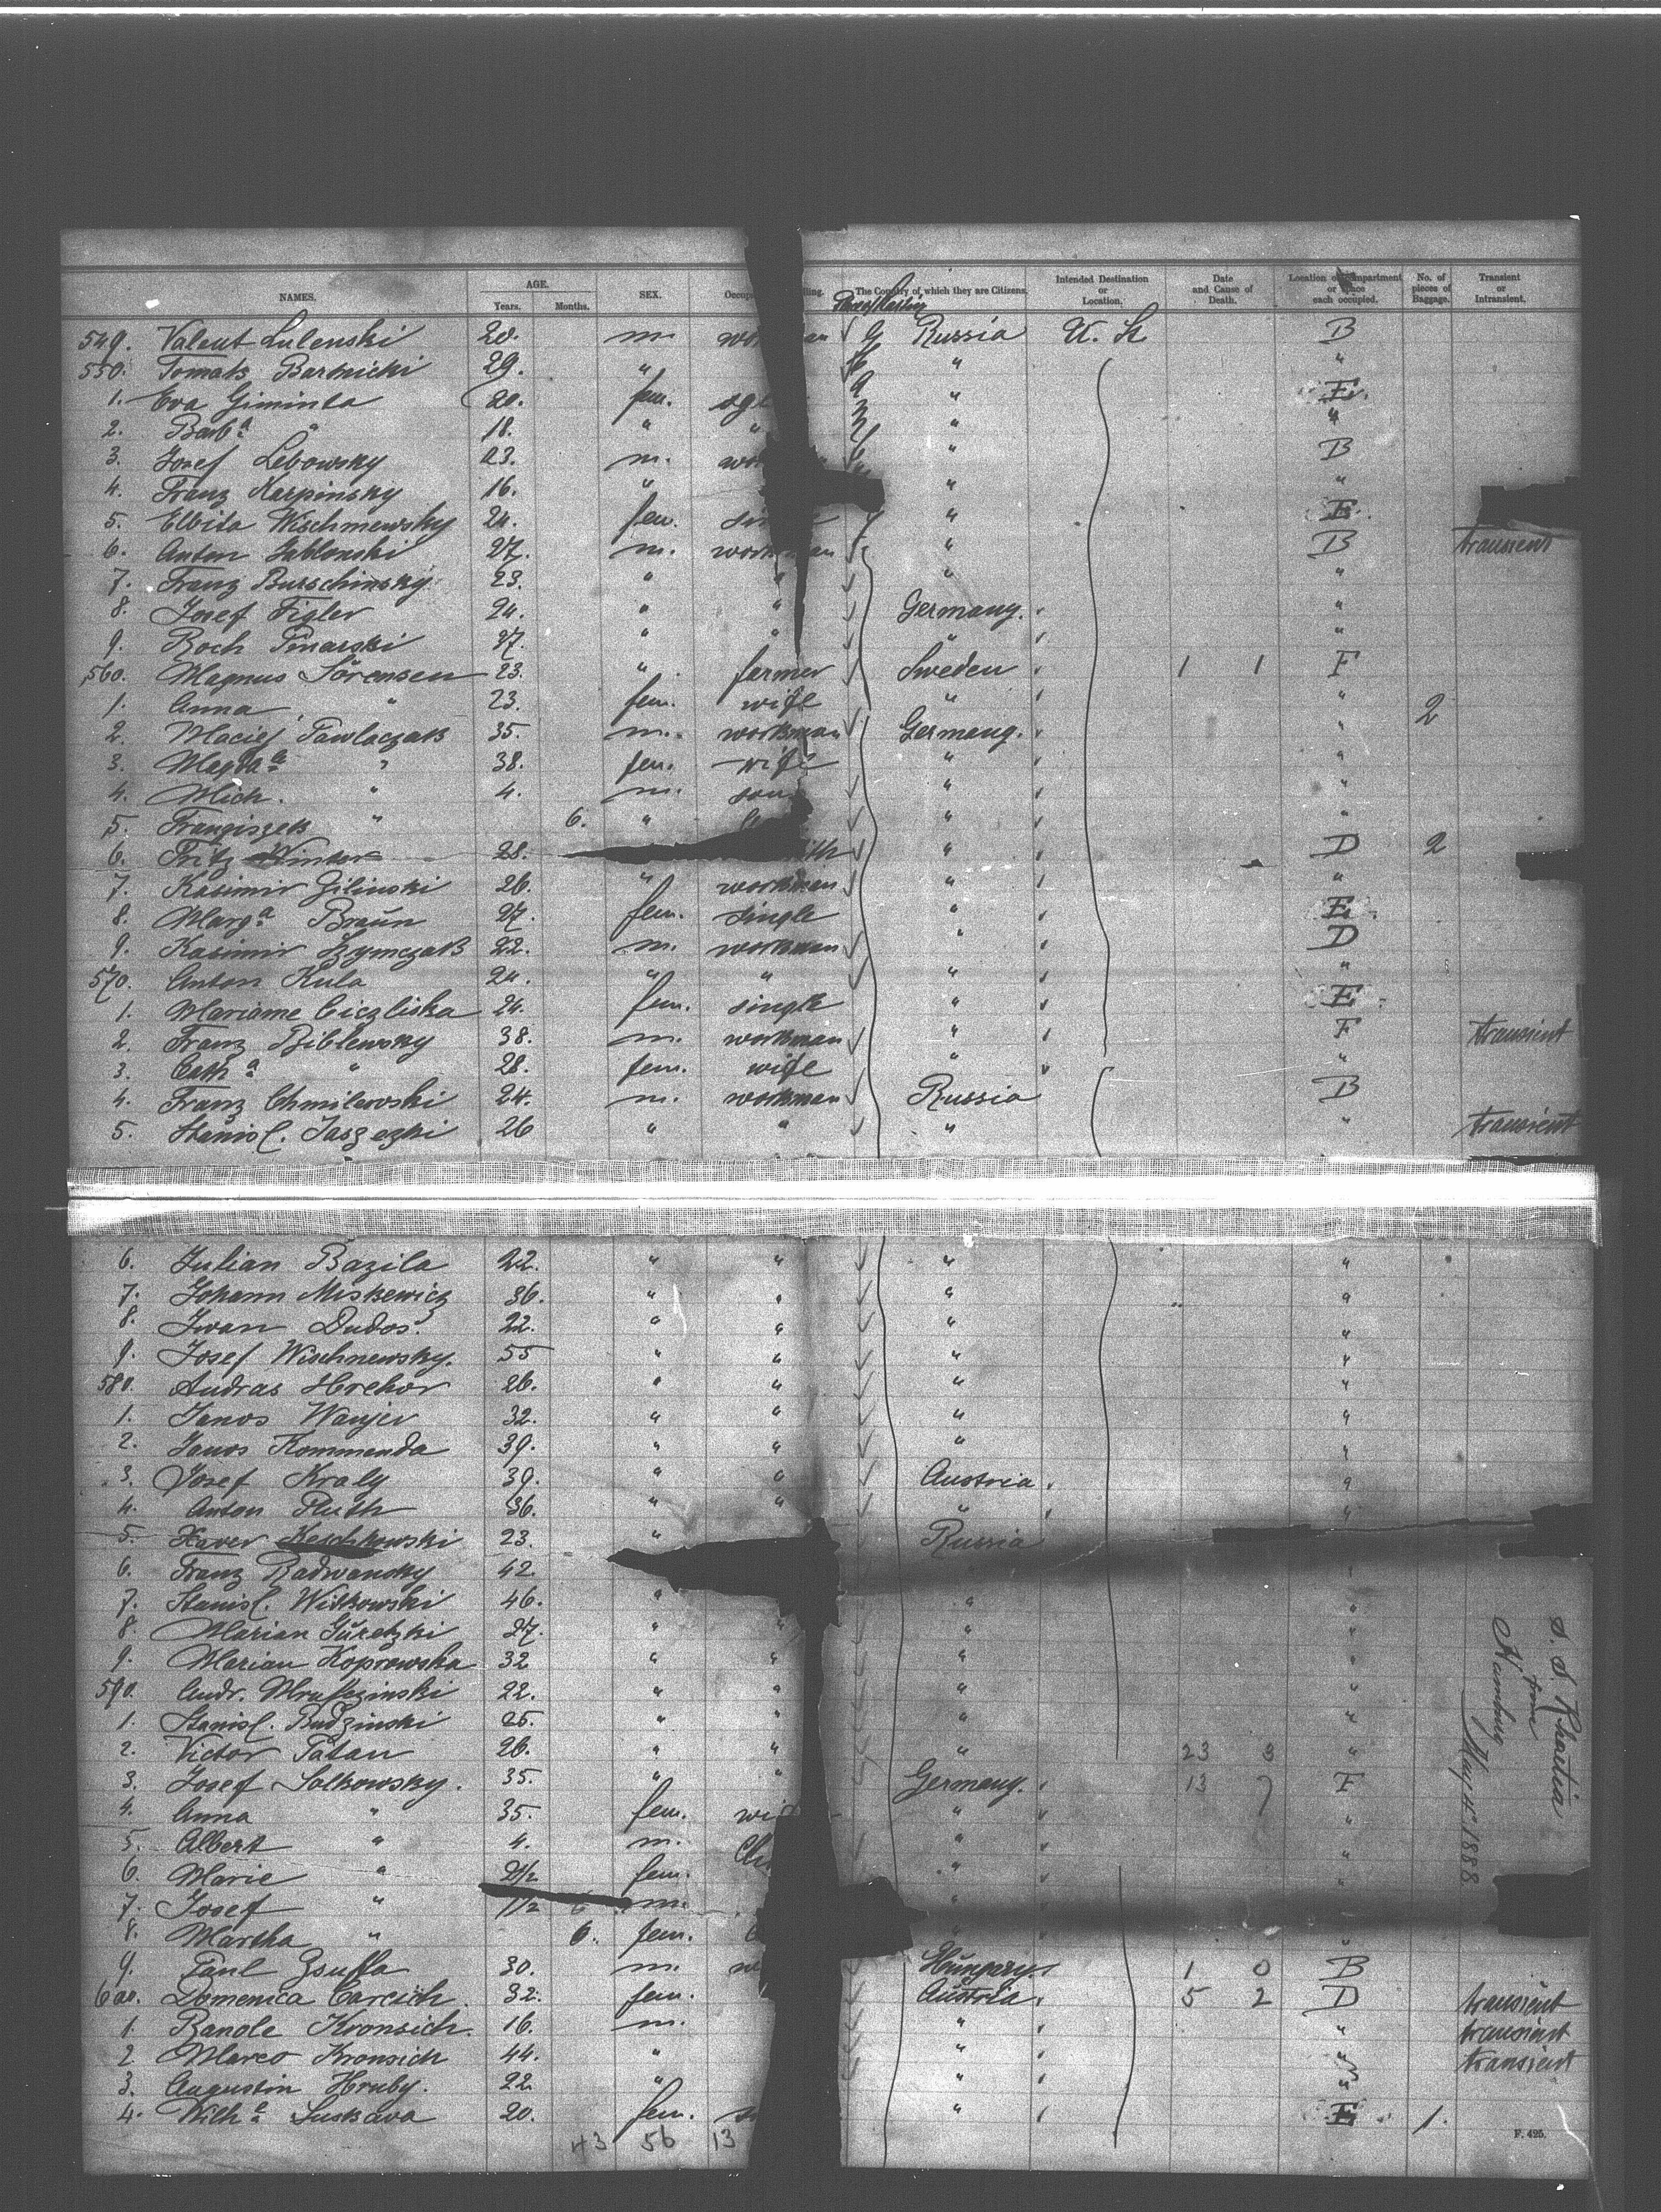 NAMES. AGE. Years. Months. SEX. The Country of which they are Citizens. Intended Destination or Location. Date and Cause of Death. Location or Compartment or space each occupied. No. of pieces of Baggage. Transient or Intransient.
549. Valent Lulenski 20. m. Russia U. St. B
550. Tomats Bartnicki 29. " " "
1. Eva Giminta 20. fem. " E.
2. Barba " 18. " " " "
3. Josef Lebowsky 23. m. " B
4. Franz Karpinsky 16. " " "
5. Elbita Wischmewsky 24. fem. " E.
6. Anton Jablonski 27. m. workman " B transient
7. Franz Burschinsky 23. " " " "
8. Josef Figler 24. " " Germany. "
9. Roch Pinarski 37. " " " "
560. Magnus Sörensen 23. " farmer Sweden 1 1 F
1. Anna " 23. fem. wife " " 2
2. Maciej Pawlaczak 35. m. workman Germany. "
3. Magda " 38. fem. wife " "
4. Mich. " 4. m. son " "
5. Franziszek " 6. " " "
6. Fritz Winter 28. " D 2
7. Kasimir Gilinski 26. " workman " "
8. Marga Braun 27. fem. single " E
9. Kasimir Szymczak 22. m. workman " D
570. Anton Kula 24. " " " "
1. Mariame Ciczliska 24. fem. single " E
2. Franz Biblewsky 38. m. workman " F transient
3. Catha " 28. fem. wife " "
4. Franz Chmilewski 24. m. workman Russia B
5. Stanisl. Jaszezki 26 " " " " transient
6. Julian Bazila 22. " " " "
7. Johann Miskewicz 36. " " " "
8. Iwan Dudos. 22. " " " "
9. Josef Wischnewsky. 55 " " " "
580. Andras Hrehor 26. " " " "
1. Janos Wanjer 32. " " " "
2. Janos Kommenda 39. " " " "
3. Josef Kraly 39. " " Austria. "
4. Anton Pluth 36. " " " "
5. Xaver Keschkowski 23. " Russia
6. Franz Radwansky 42. "
7. Stanisl. Witkowski 46. " " "
8. Marian Guretzki 27. " " " "
9. Marian Koprowska 32 " " " "
590. Andr. 22. " " " "
1. Stanisl. Budzinski 25. " " " "
2. Victor Tatan 26. " " " 23 3 "
3. Josef Salkowsky. 35. " " Germany. 13 7 F
4. Anna " 35. fem. " "
5. Albert " 4. m. " "
6. Marie " 2 1/2 fem. " "
7. Josef " 1 1/2 m. "
8. Martha " 6. fem. " "
9. Paul Zsuffa 30. m. Hungary. 1 0 B
600. Domenica Carcich 32. fem. Austria. 5 2 D transient
1. Banole Kronsich. 16. m. " " transient
2 Marco Kronsich 44. " " " transient
3. Augustin Hruby. 22. " " "
4. Wilha Suskava 20. fem. " E 1.
43 56 13
F. 425.
S. S. Rhaetia
from
Hamburg
May 15. 1888